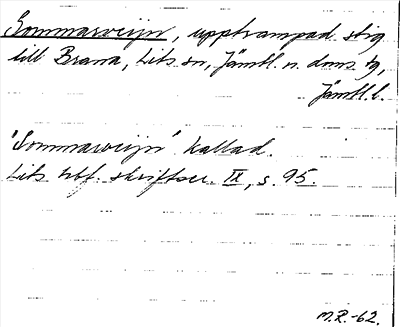 Sommarveijn, upptrampad stig
till Brana, Lits sn, Jämtl. n. doms. tg,
Jämtl. l.
'Sommarveijn' kallad.
Lits hbf. skriftser. IX, s. 95.
M.R.-62.